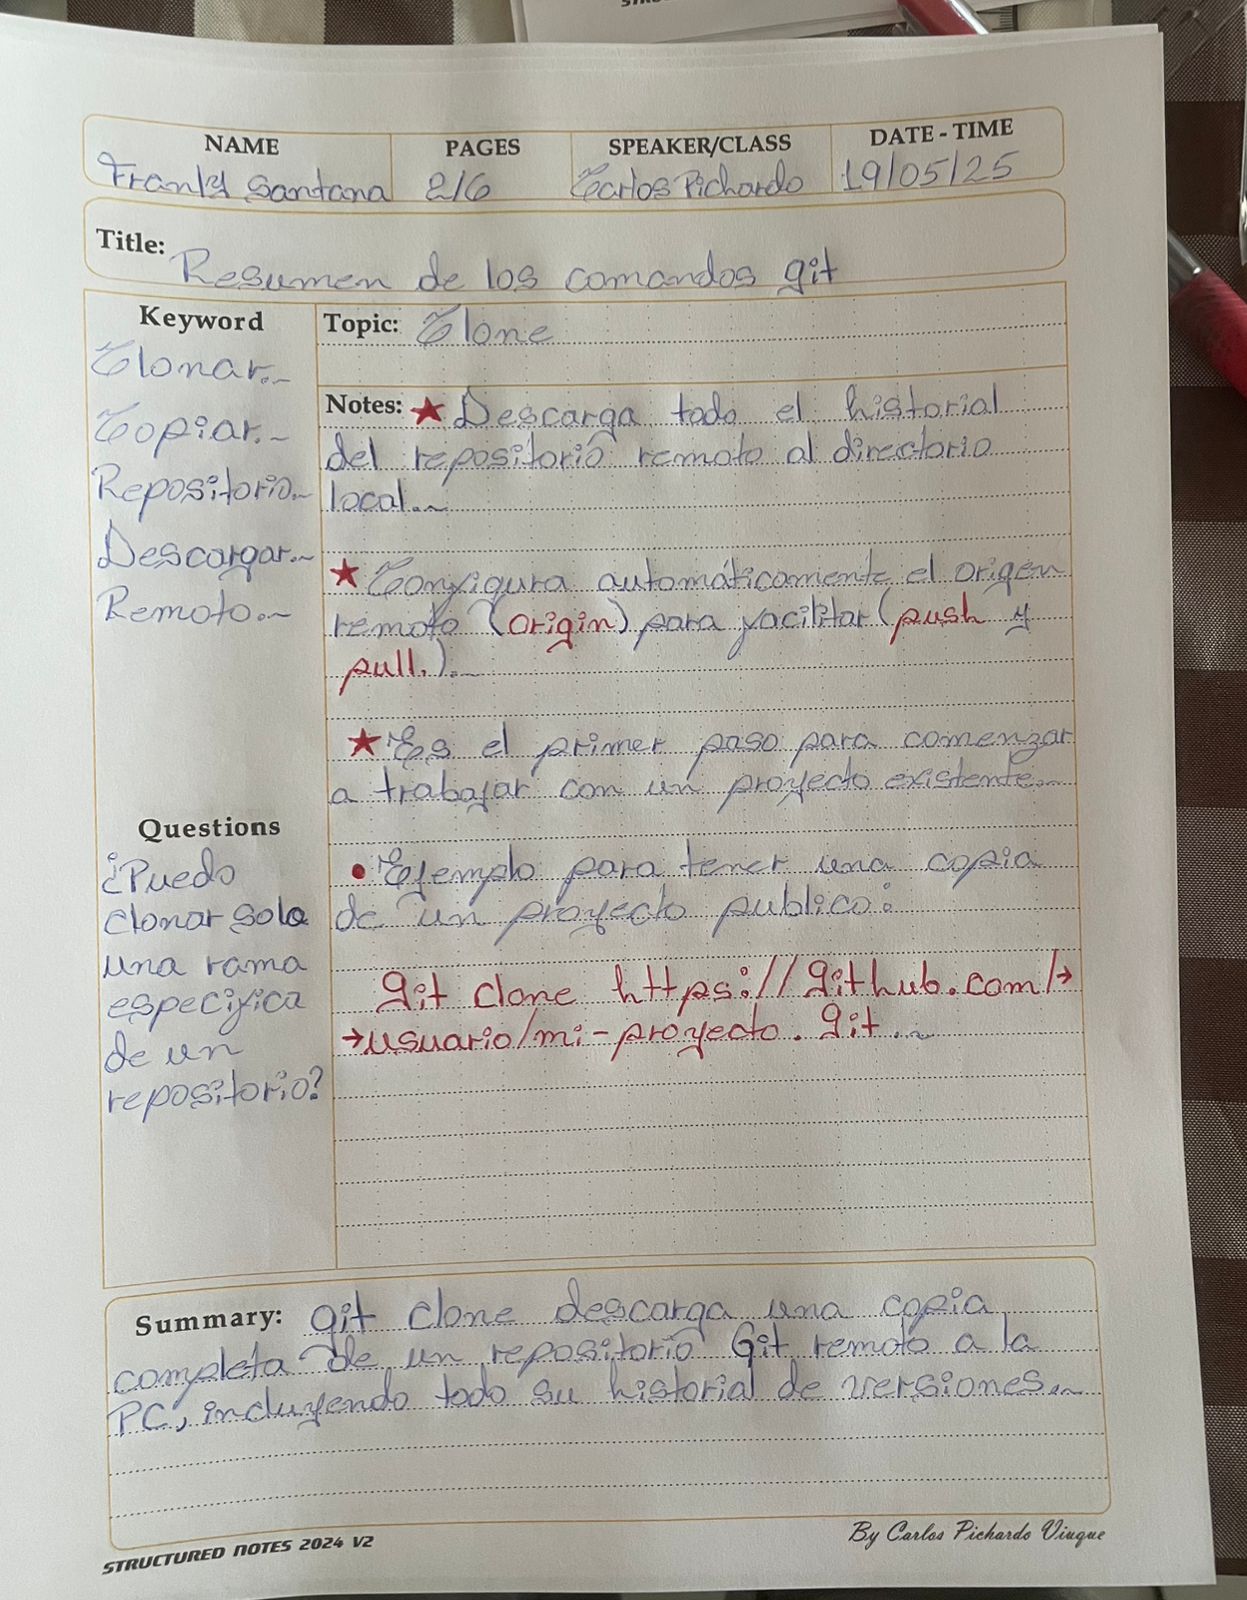 NAME PAGES SPEAKER/CLASS DATE - TIME
Frankly Santana 2/6 Carlos Pichardo 19/05/25
Title: Resumen de los comandos git
Keyword
Clonar.~
Copiar.~
Repositorio.~
Descargar.~
Remoto.~
Topic: Clone
Notes: ★ Descarga todo el historial
del repositorio remoto al directorio
local.~
★ Configura automáticamente el origen
remoto (origin) para facilitar (push y
pull.).~
★ Es el primer paso para comenzar
a trabajar con un proyecto existente.~
• Ejemplo para tener una copia
de un proyecto publico:
git clone https://github.com/→
→usuario/mi-proyecto.git.~
Questions
¿Puedo
clonar solo
una rama
especifica
de un
repositorio?
Summary: git clone descarga una copia
completa de un repositorio Git remoto a la
PC, incluyendo todo su historial de versiones.~
STRUCTURED NOTES 2024 V2
By Carlos Pichardo Viuque